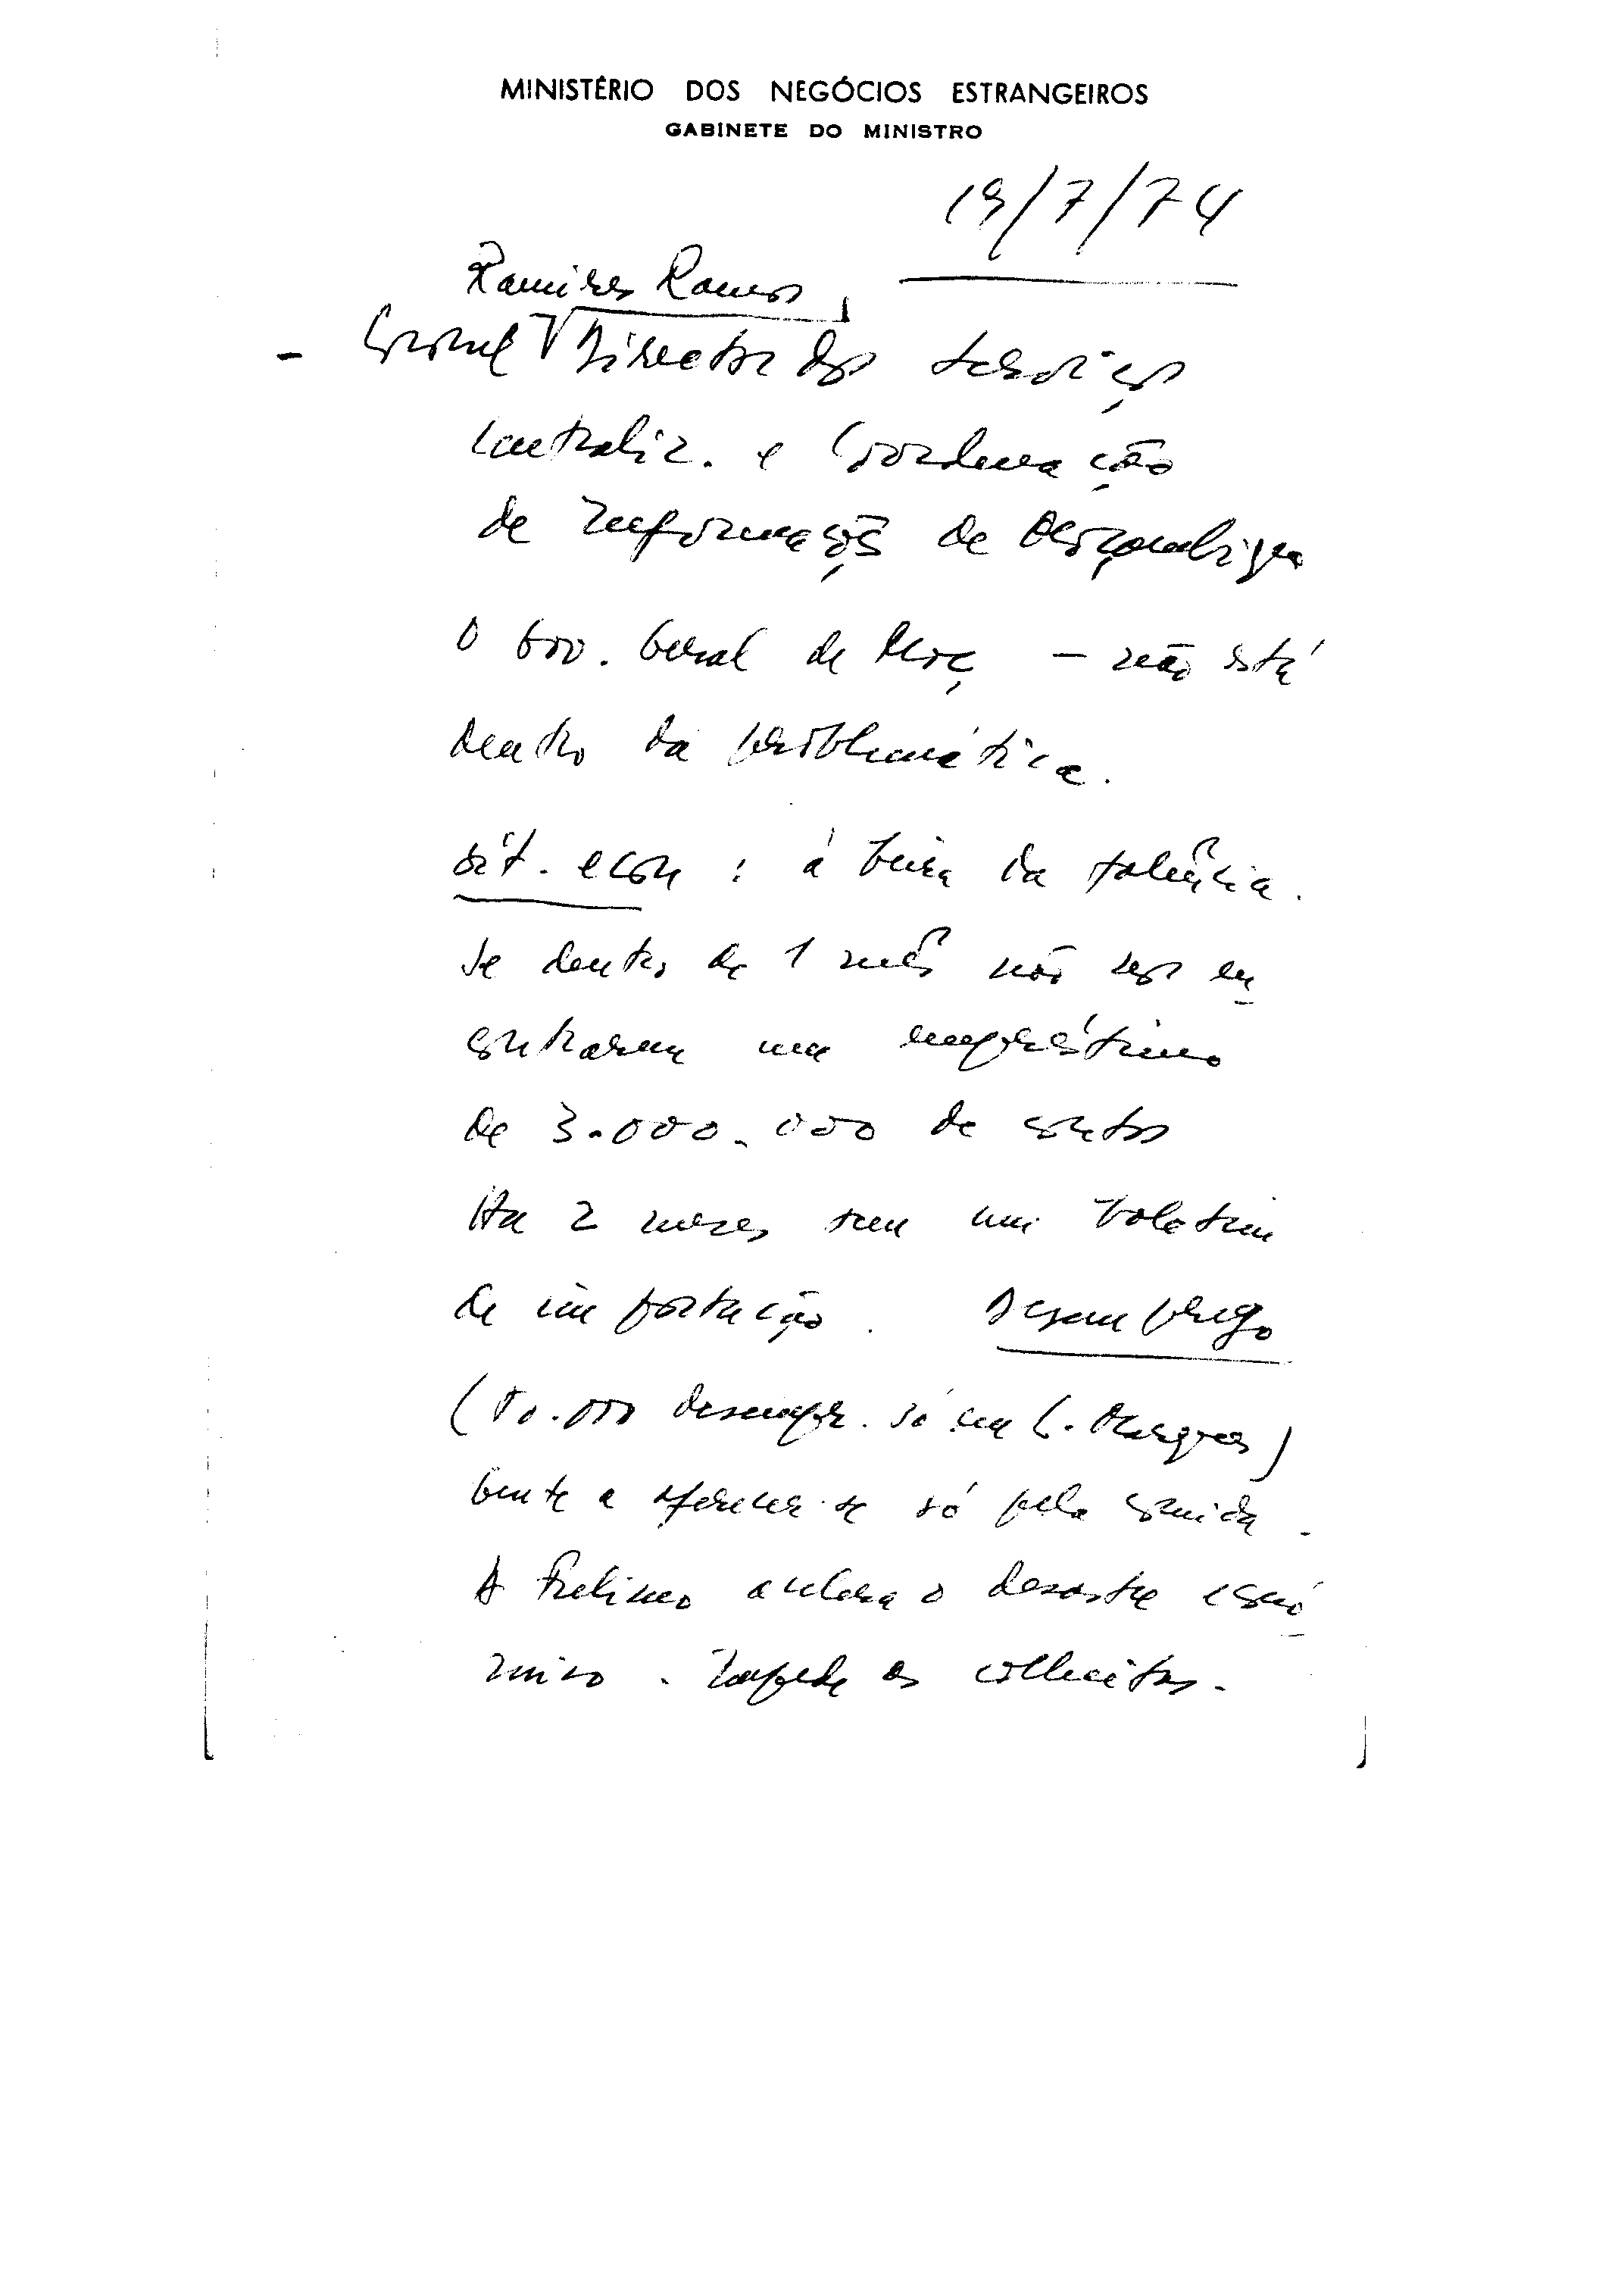 MINISTÉRIO DOS NEGÓCIOS ESTRANGEIROS
GABINETE DO MINISTRO
19/7/74
Ramires Ramos,
- Coronel V Director dos Serviços
Centraliz. e Coordenação
de Informações de Moçambique
O Gov. Geral de Moç - não está
dentro da problemática.
sit. econ : à beira da falência.
Se dentro de 1 mês não se en
contrarem um empréstimo
de 3.000.000 de contos
Ha 2 meses sem um boletim
de importação. Desemprego
(50.000 desempr. só em L. Marques)
Gente a oferecer-se só pela comida.
A Frelimo acelera o desastre econó
mico. Impede as colheitas.